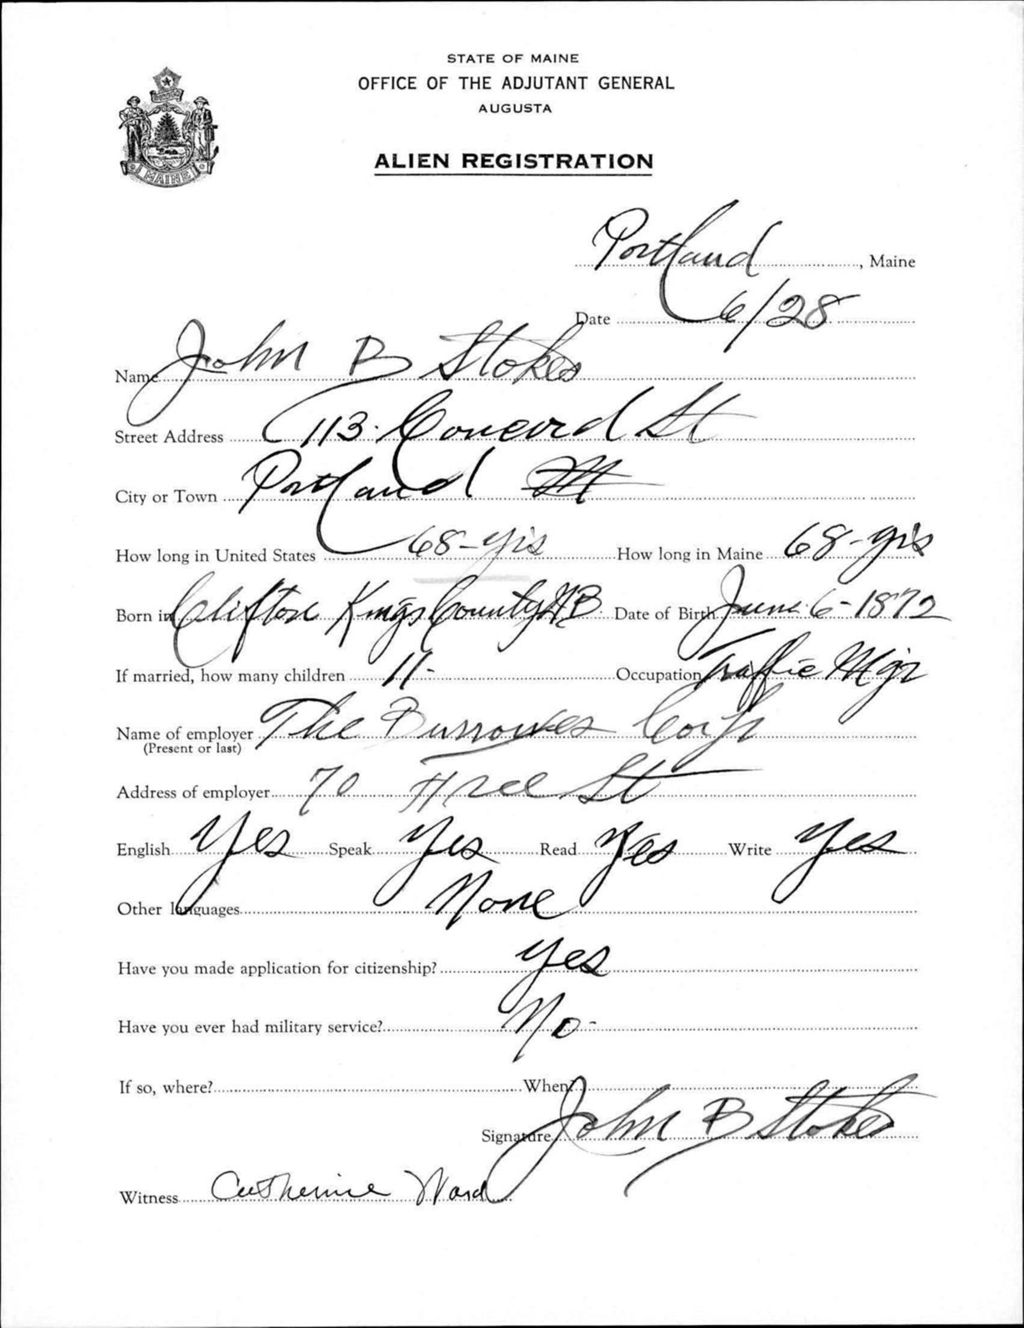 STATE OF MAINE
OFFICE OF THE ADJUTANT GENERAL
AUGUSTA
MAINE
ALIEN REGISTRATION
Portland, Maine
Date 6/28
Name John B Stokes
Street Address 113. Concord St
City or Town Portland
How long in United States 68-yrs How long in Maine 68-yrs
Born in Clifton Kings County N.B. Date of Birth June 6-1872
If married, how many children 11- Occupation Traffic Mgr
Name of employer The Burrowes Corp
(Present or last)
Address of employer 70 Free St
English Yes Speak Yes Read Yes Write Yes
Other languages None
Have you made application for citizenship? Yes
Have you ever had military service? No-
If so, where? When?
Signature John B Stokes
Witness Catherine Ward